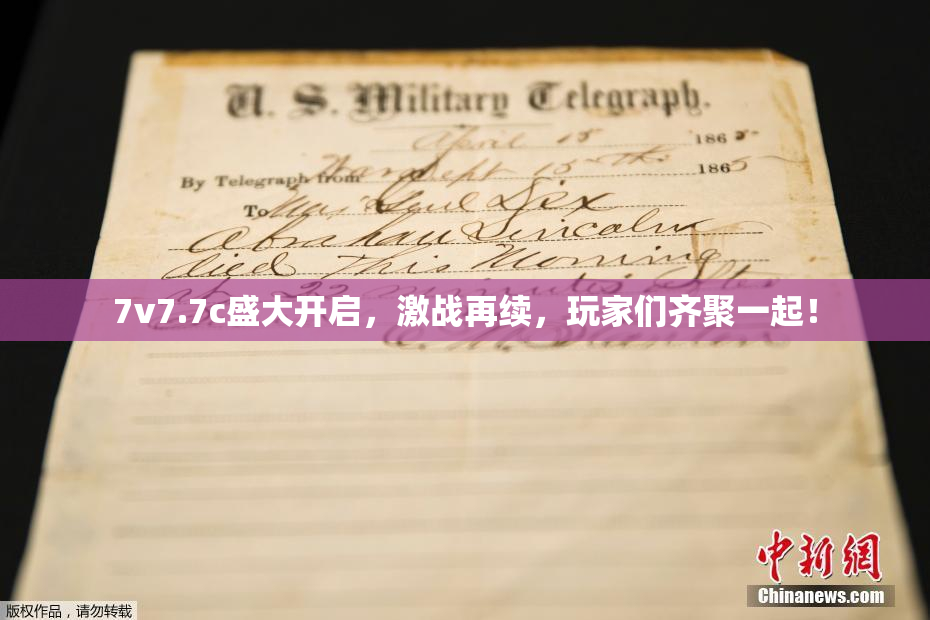 U. S. Military Telegraph.
April 15 1865
By Telegraph from War Dept 15th 1865
To Maj Genl Dix
Abraham Lincoln
died This Morning
at 22 minutes after
7v7.7c盛大开启，激战再续，玩家们齐聚一起！
E. M. Stanton
中新网
Chinanews.com
版权作品，请勿转载